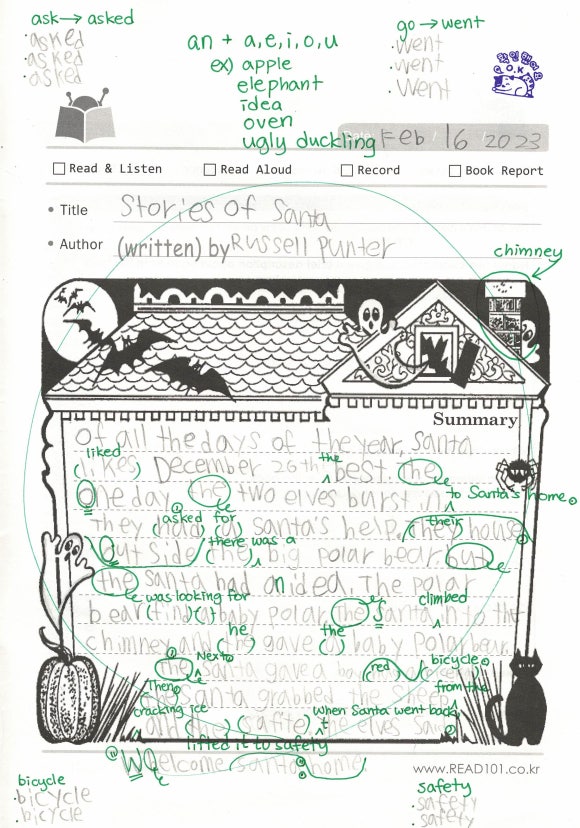 ask → asked
go → went
· asked
asked
· asked
an + a, e, i, o, u
· went
· went
· Went
ex) apple
elephant
idea
oven
ugly duckling
O.K
Feb 16 2023
Read & Listen
Read Aloud
Record
Book Report
• Title Stories of Santa
• Author (written) by Russell Punter
chimney
Summary
Of all the days of the year, Santa
liked the
(likes) December 26th best. the
one day the two elves burst in to Santa's home.
asked for their
They (had) (a) Santa's help. (they) house
there was a
out side (the) big polar bear but
the Santa had an idea. The polar
was looking for climbed
bear (find) (a) baby polar. the Santa in to the
he the
chimney and (the) gave () baby Polar bear.
Next red bicycle
the Santa gave a
Then from the
Santa grabbed the
cracking ice when Santa went back
the elves
lifted it to safety
Welcome Santa home
www.READ101.co.kr
bicycle
· bicycle
bicycle
safety
· safety
· safety